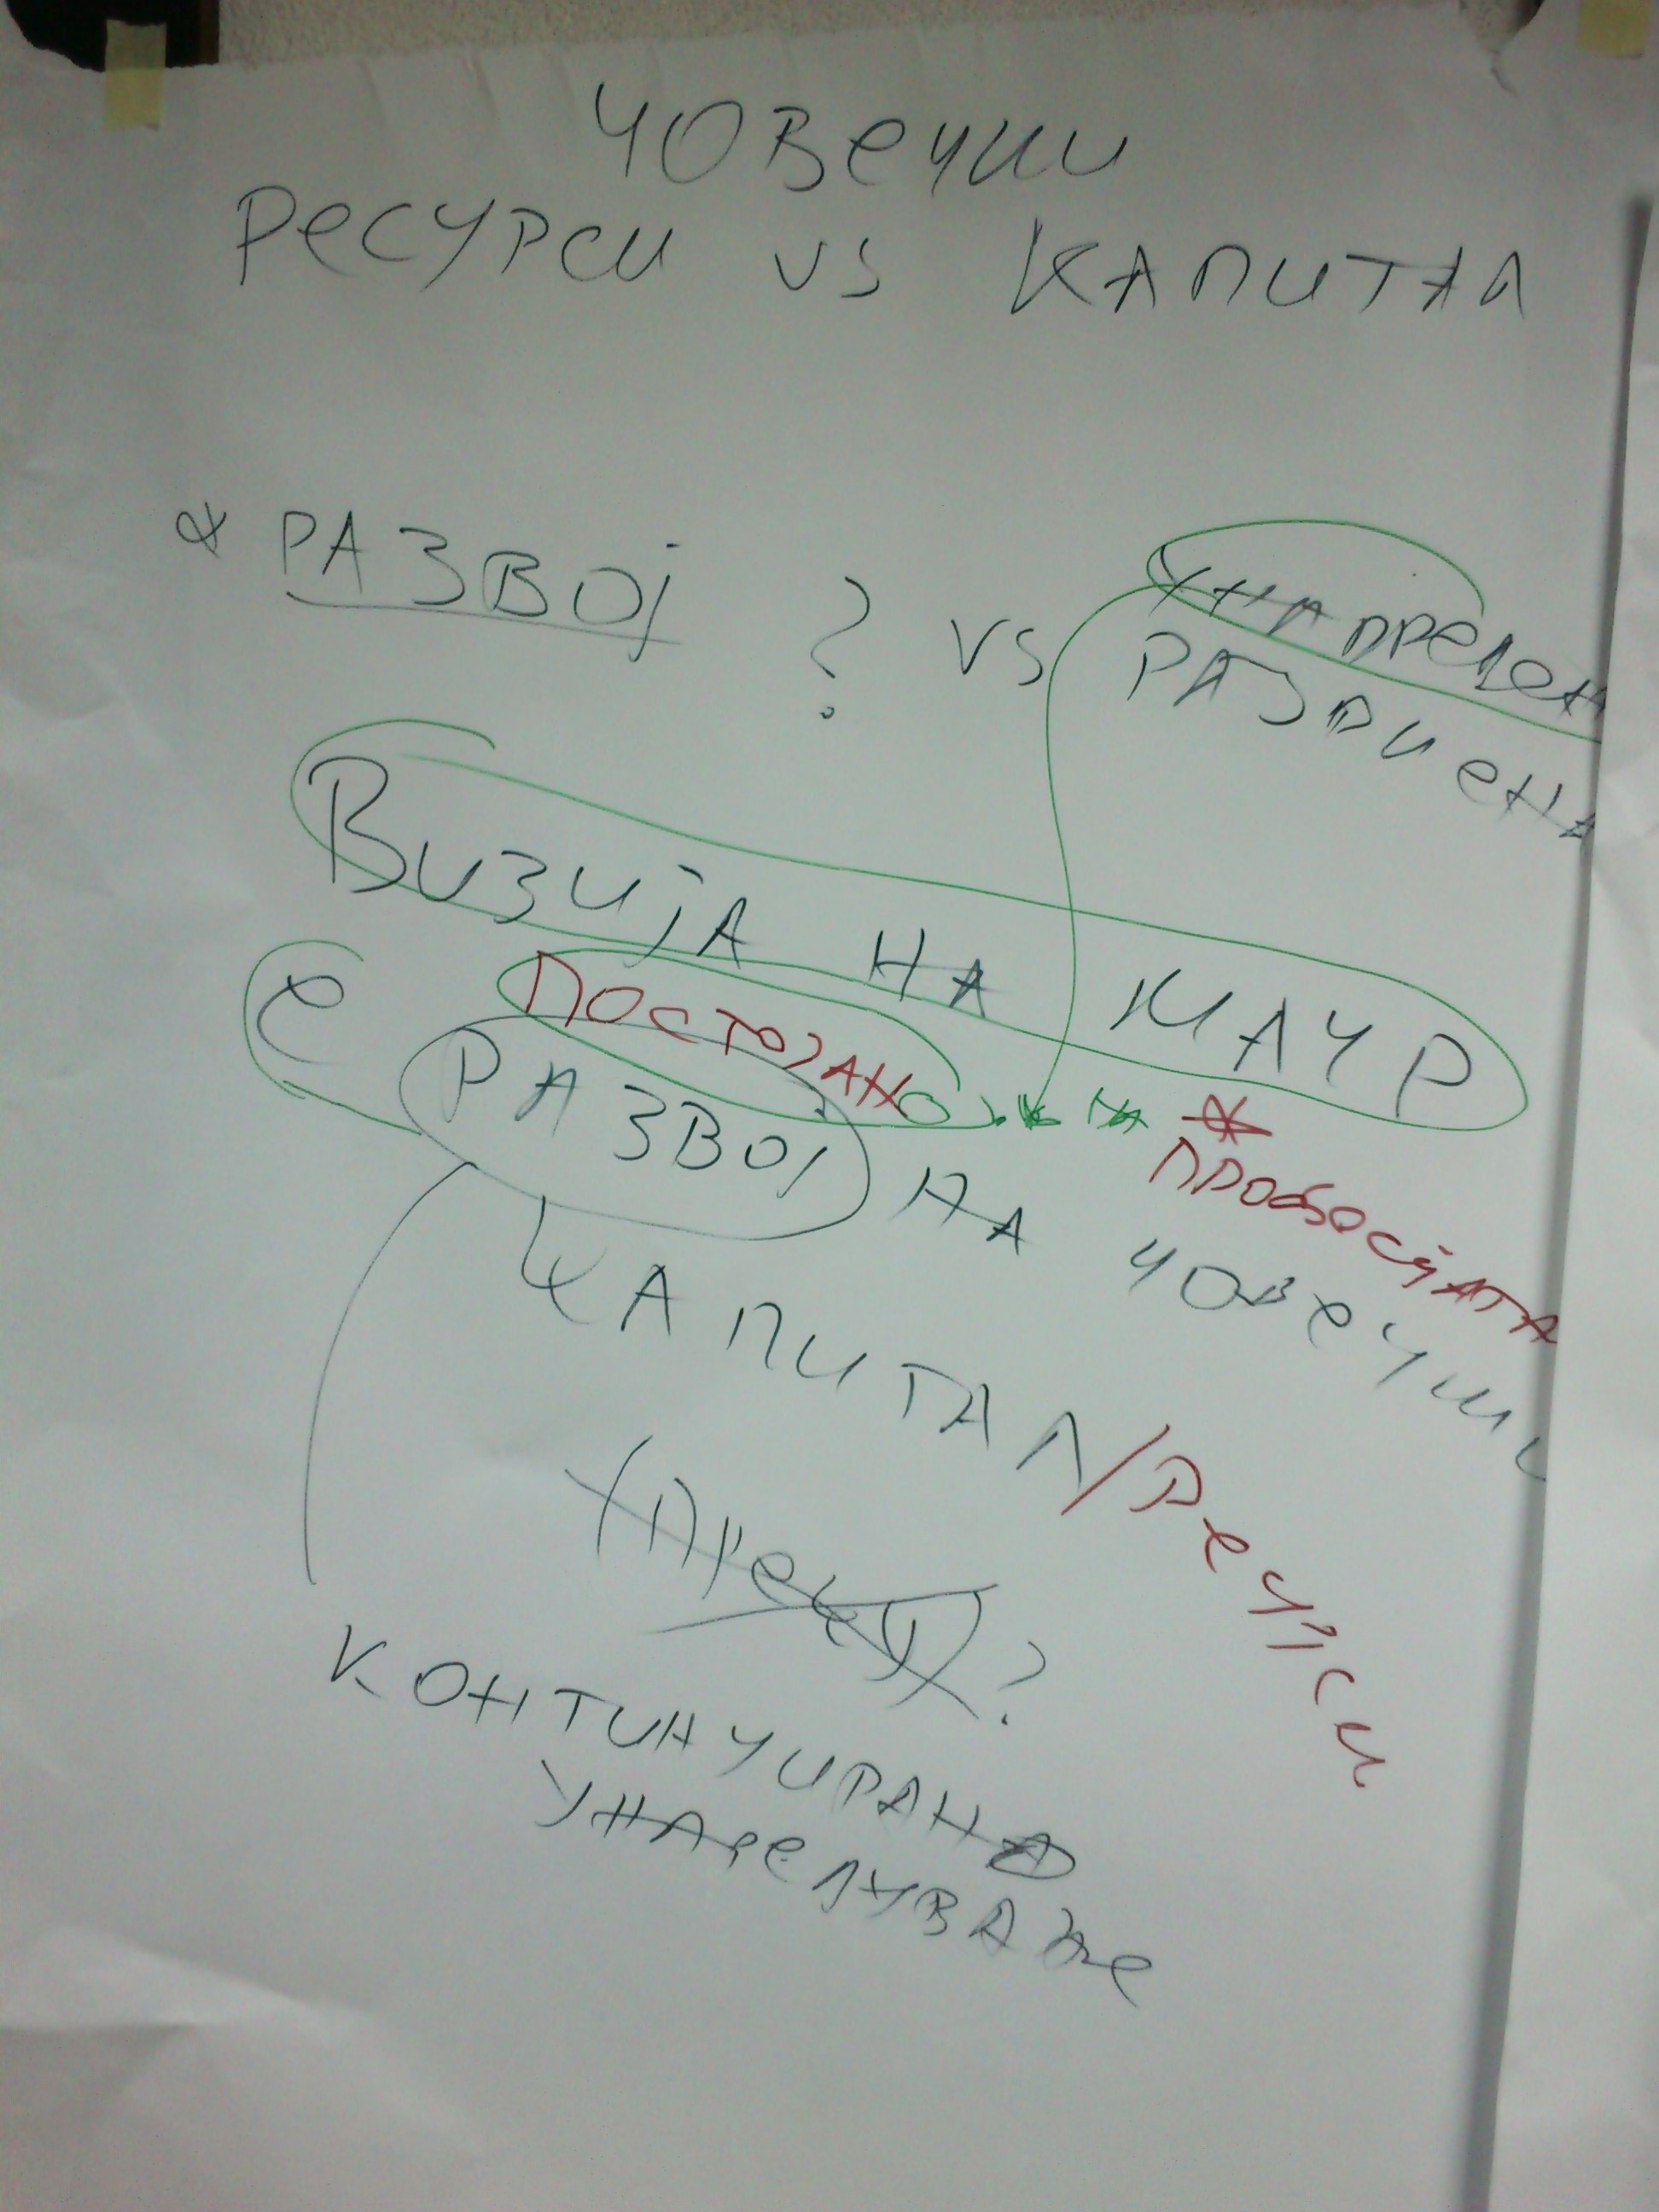 ЧОВЕЧКИ
РЕСУРСИ VS КАПИТАЛ
* РАЗВОЈ ? VS
УНАПРЕДЕН
РАЗВИЕНА
ВИЗИЈА НА МАЧР
Е ПОСТОЈАНО НА
РАЗВОЈ НА ЧОВЕЧКИ
КАПИТАЛ/РЕСУРСИ
?
КОНТИНУИРАНО
УНАРЕДУВАЊЕ